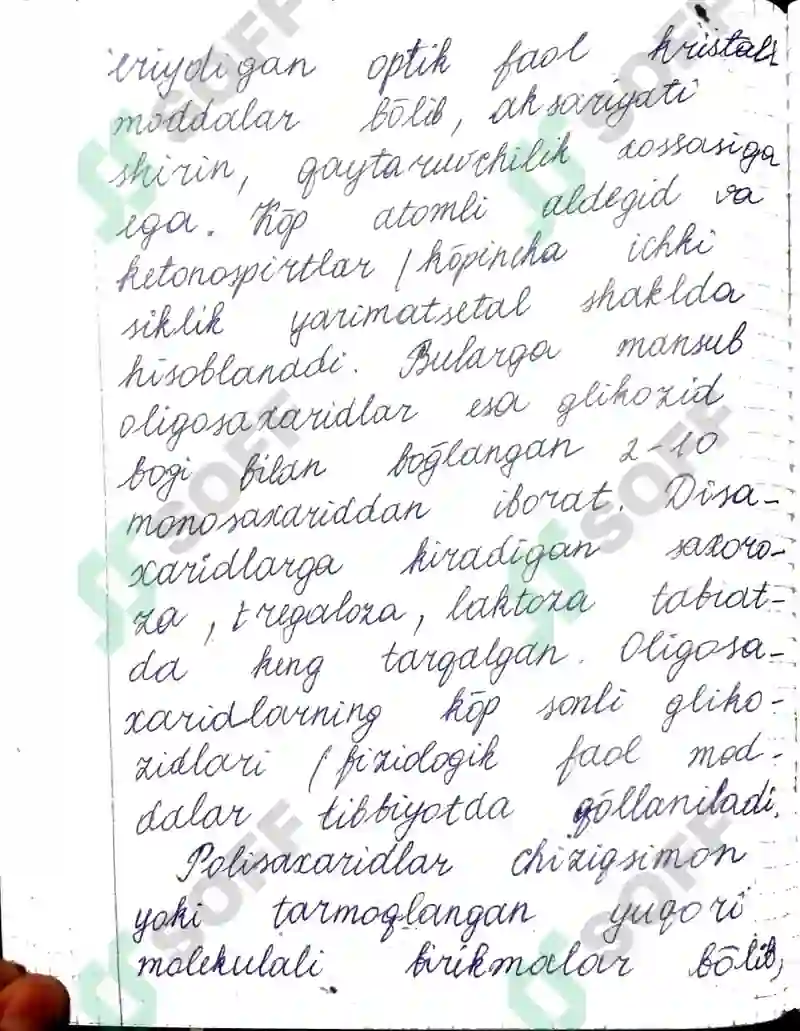 eriydigan optik faol kristall
moddalar bōlib, aksariyati
shirin, qaytaruvchilik xossasiga
ega. Kōp atomli aldegid va
ketonospirtlar / kōpincha ichki
siklik yarimatsetal shaklda
hisoblanadi. Bularga mansub
oligosaxaridlar esa glikozid
bogi bilan boḡlangan 2-10
monosaxariddan iborat. Disa-
xaridlarga kiradigan saxoro-
za, tregaloza, laktoza tabiat-
da keng tarqalgan. Oligosa-
xaridlarning kōp sonli gliko-
zidlari / fiziologik faol mod-
dalar tibbiyotda qōllaniladi.
Polisaxaridlar chiziqsimon
yoki tarmoqlangan yuqori
molekulali birikmalar bōlib,
SOFF
SOFF
SOFF
SOFF
SOFF
SOFF